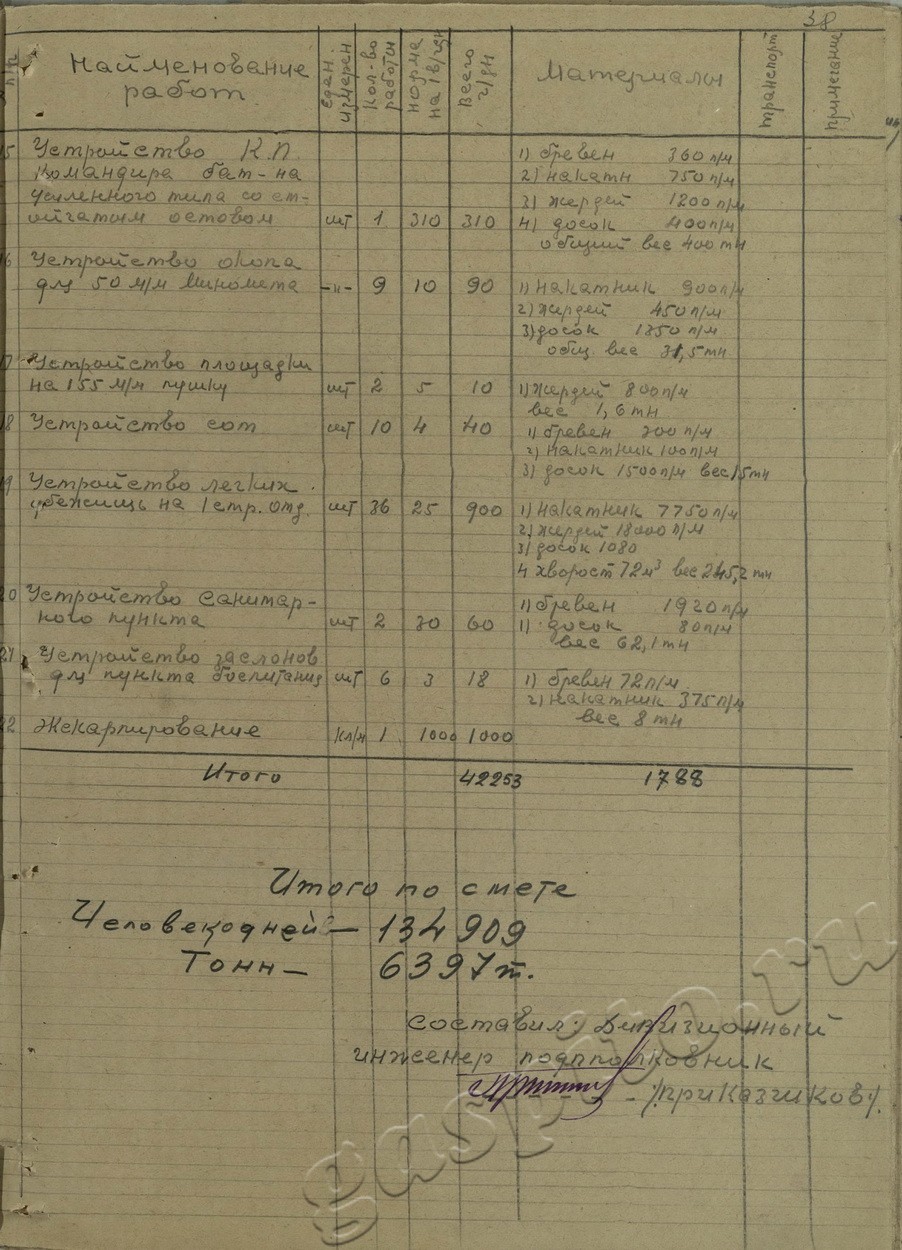 38
п/п Найменование работ Един. измерен Кол-во работы норма на 1 в/дн Всего ч/дн Материалы транспорт примечание
15 Устройство К.П. 1) бревен 360 п/м
командира бат-на 2) накатн 750 п/м
усиленного типа со ст- 3) жердей 1200 п/м
ойчатым остовом шт 1 310 310 4) досок 400 п/м
общий вес 400 тн
16 Устройство окопа
для 50 м/м миномета -"- 9 10 90 1) накатник 900 п/м
2) жердей 450 п/м
3) досок 1350 п/м
общ. вес 31,5 тн
17 Устройство площадки
на 155 м/м пушку шт 2 5 10 1) жердей 800 п/м
вес 1,6 тн
18 Устройство сот шт 10 4 40 1) бревен 200 п/м
2) накатник 100 п/м
3) досок 1500 п/м вес 15 тн
19 Устройство легких
убежищь на 1 стр. отд. шт 36 25 900 1) накатник 7750 п/м
2) жердей 18000 п/м
3) досок 1080
4 хворост 72 м³ вес 245,2 тн
20 Устройство санитар- 1) бревен 1920 п/м
ного пункта шт 2 30 60 1) досок 80 п/м
вес 62,1 тн
21 Устройство заслонов
для пункта боепитания шт 6 3 18 1) бревен 72 п/м
2) накатник 375 п/м
вес 8 тн
22 Экскарпирование кл/м 1 1000 1000
Итого 42253 1788
Итого по смете
Человекодней — 134 909
Тонн — 6397 т.
составил: Дивизионный
инженер подпполковник
- /приказчиков/.
gaspiko.ru